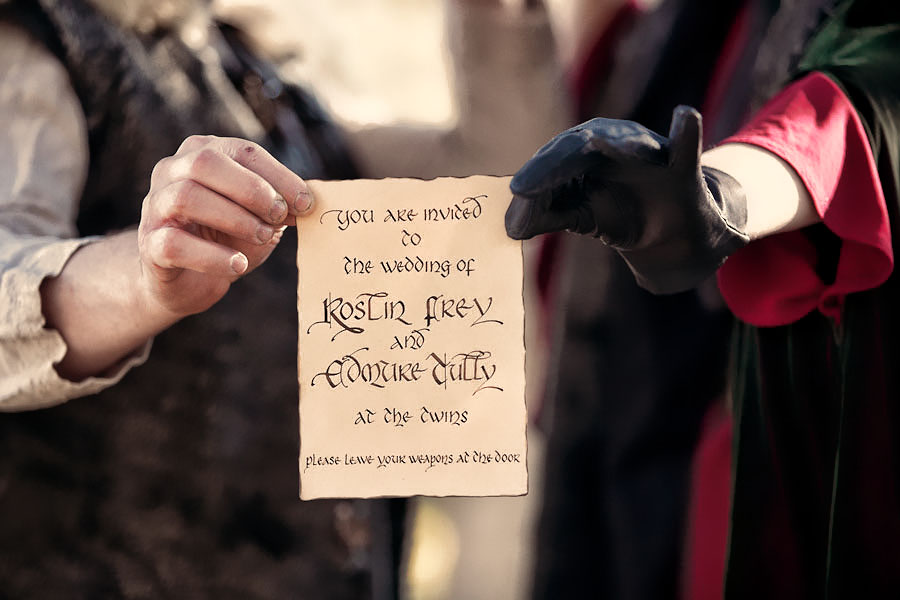 You are invited
to
the wedding of
Roslin Frey
and
Edmure Tully
at the twins
please leave your weapons at the door